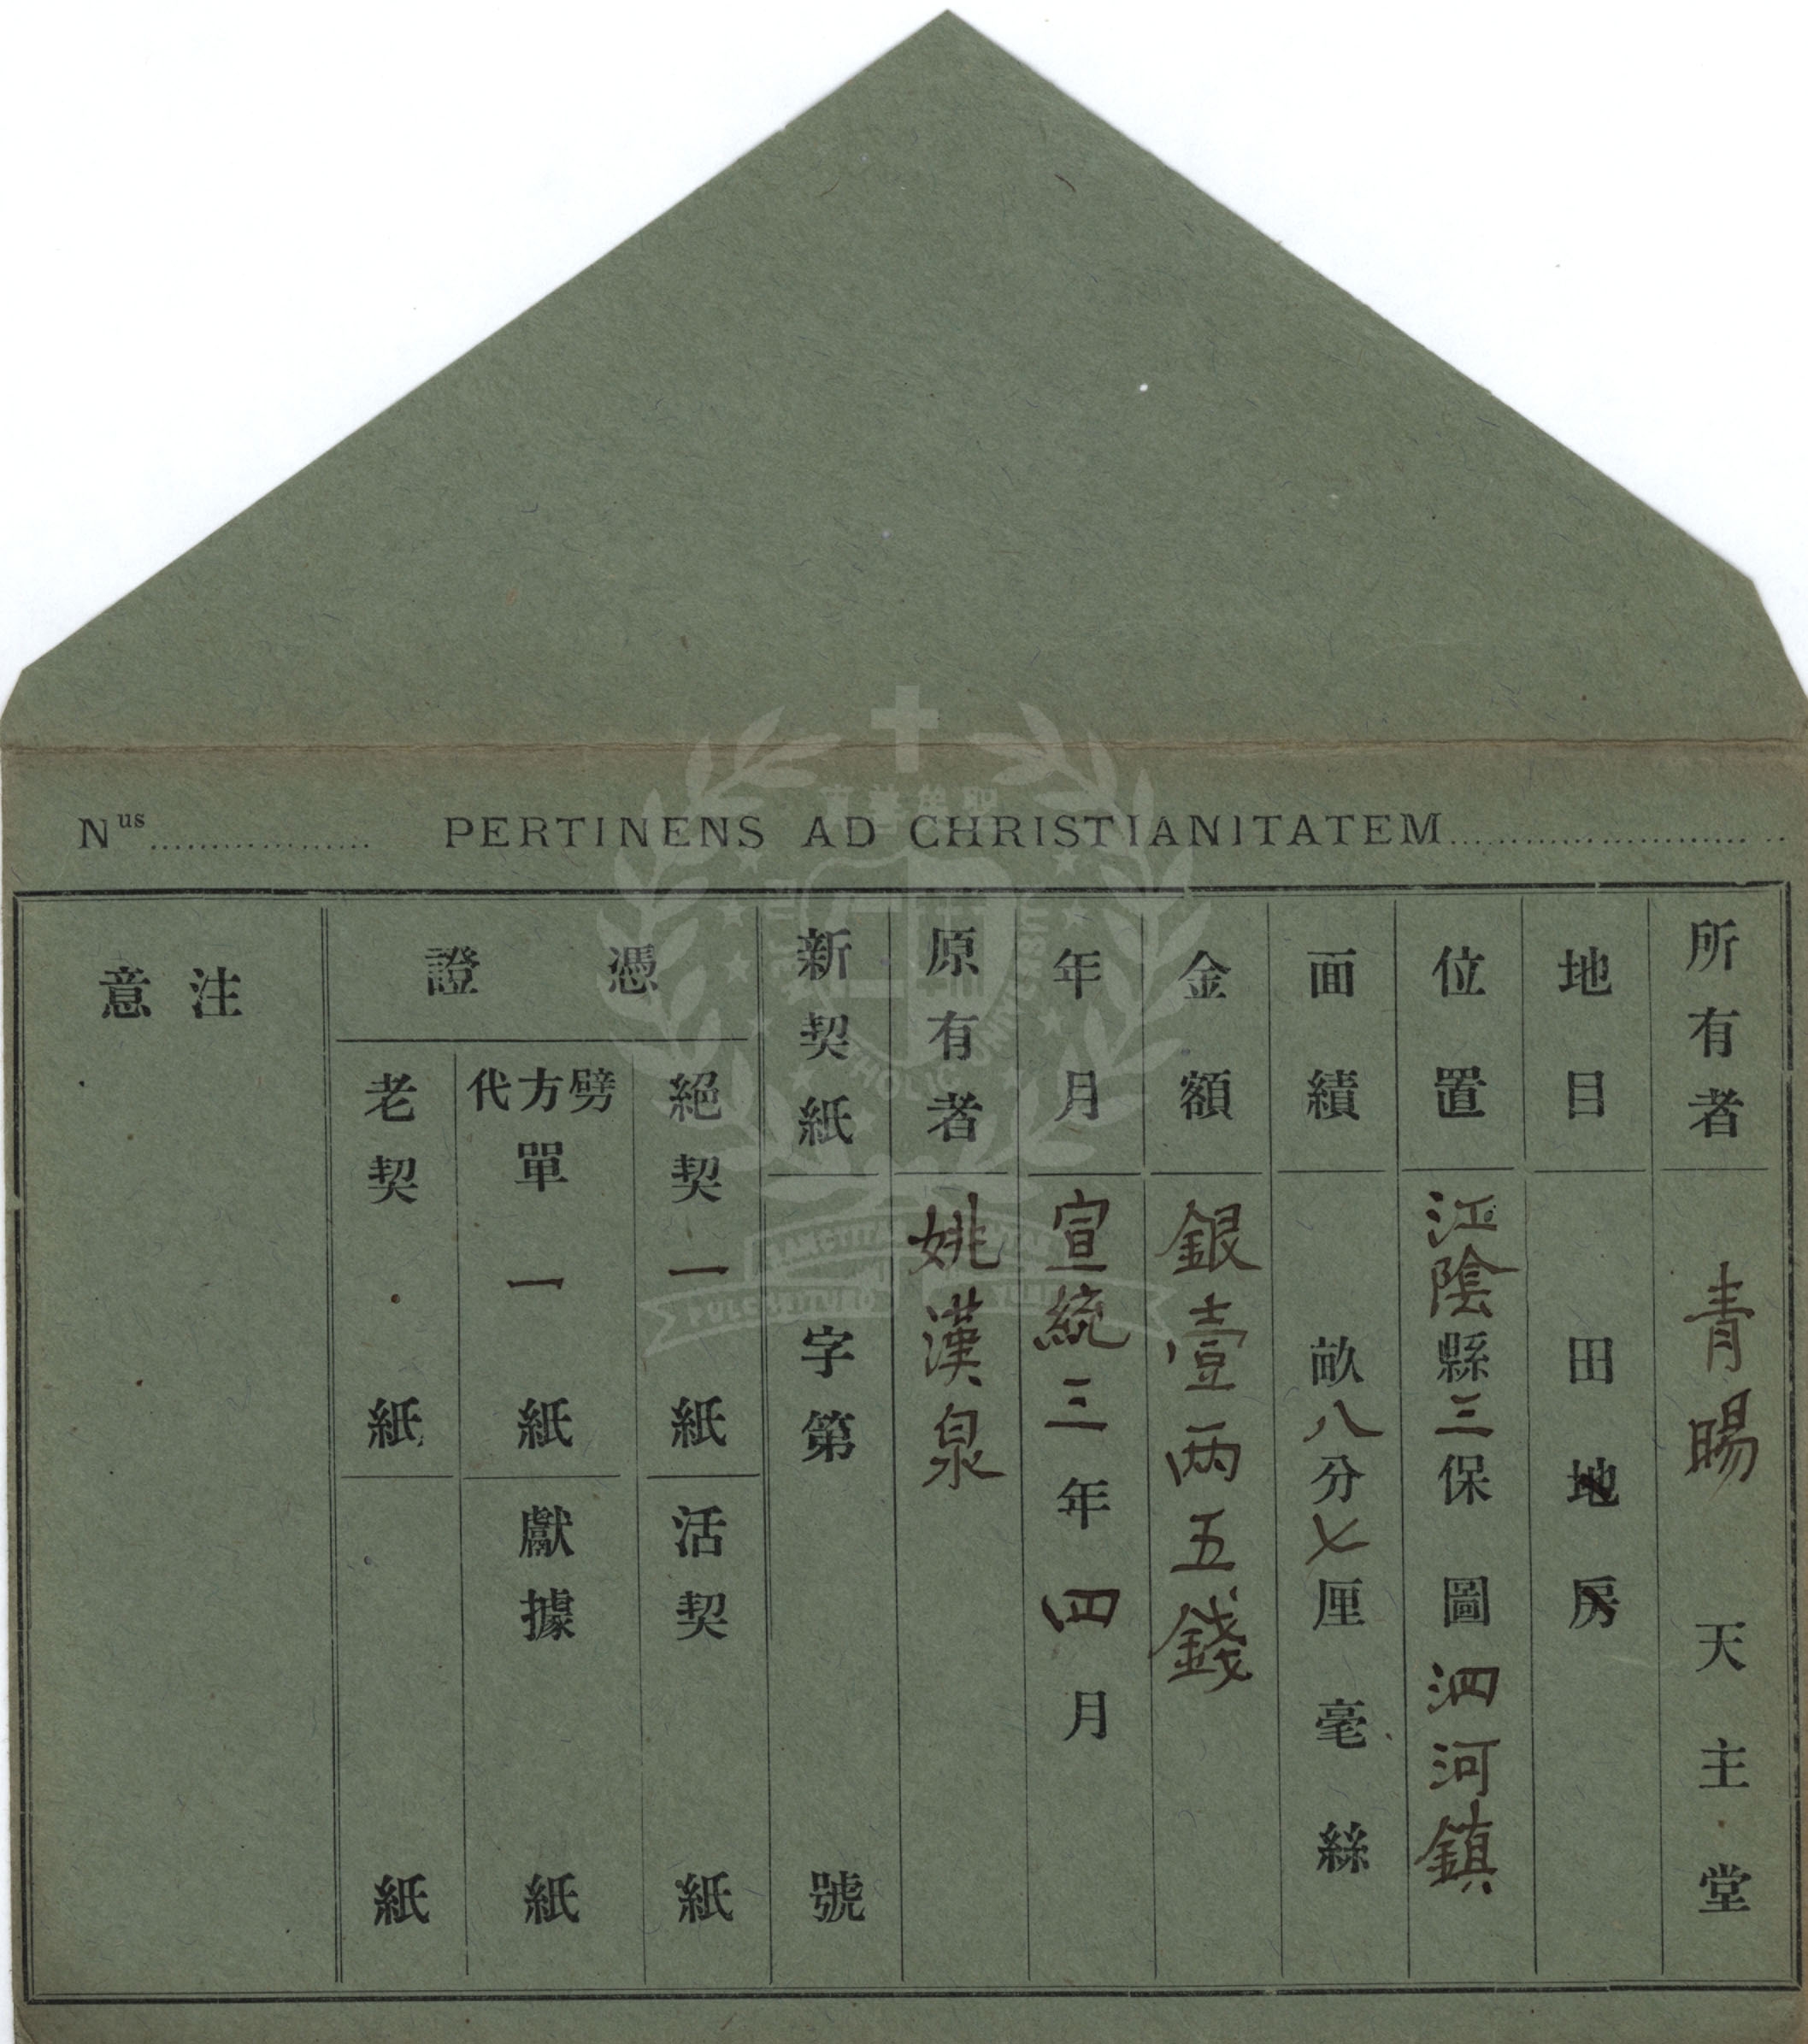 Nus.................. PERTINENS AD CHRISTIANITATEM...........................
所有者 青暘 天主堂
地目 田地房
位置 江陰縣三保圖泗河鎮
面績 畝八分七厘毫絲
金額 銀壹兩五錢
年月 宣統三年四月
原有者 姚漢泉
新契紙 字第 號
憑證
絕契一紙 活契 紙
劈方代單一紙 獻據 紙
老契 紙 紙
注意